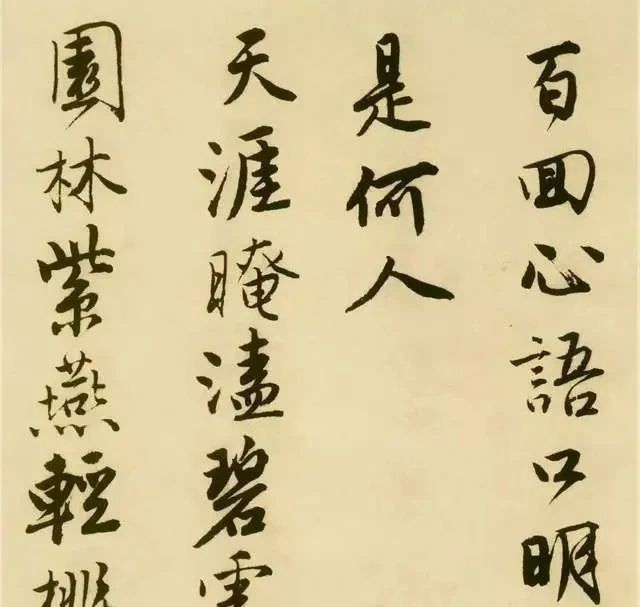 百回心語口明
是何人
天涯晻溘碧雲
園林紫燕輕桃